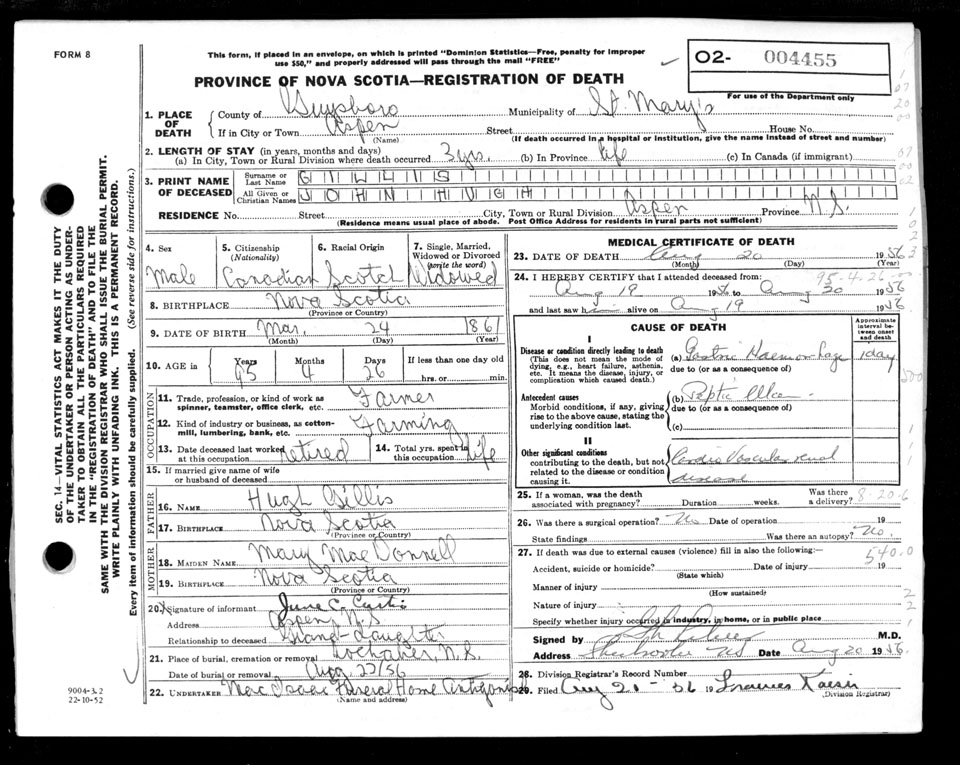 FORM 8
This form, if placed in an envelope, on which is printed "Dominion Statistics—Free, penalty for improper
use $50," and properly addressed will pass through the mail "FREE"
02- 004455
For use of the Department only
PROVINCE OF NOVA SCOTIA—REGISTRATION OF DEATH
1. PLACE OF DEATH
County of Guysboro Municipality of St. Mary's
If in City or Town Aspen Street House No.
(Name) (If death occurred in a hospital or institution, give the name instead of street and number)
2. LENGTH OF STAY (in years, months and days)
(a) In City, Town or Rural Division where death occurred 3 yrs. (b) In Province life (c) In Canada (if immigrant)
3. PRINT NAME OF DECEASED
Surname or Last Name GILLIS
All Given or Christian Names JOHN HUGH
RESIDENCE No. Street City, Town or Rural Division Aspen Province N.S.
(Residence means usual place of abode. Post Office Address for residents in rural parts not sufficient)
4. Sex Male
5. Citizenship (Nationality) Canadian
6. Racial Origin Scotch
7. Single, Married, Widowed or Divorced (write the word) Widowed
8. BIRTHPLACE Nova Scotia
(Province or Country)
9. DATE OF BIRTH Mar. 24 1861
(Month) (Day) (Year)
10. AGE in Years 95 Months 4 Days 26 If less than one day old
hrs. or min.
OCCUPATION
11. Trade, profession, or kind of work as spinner, teamster, office clerk, etc. Farmer
12. Kind of industry or business, as cotton-mill, lumbering, bank, etc. Farming
13. Date deceased last worked at this occupation retired
14. Total yrs. spent in this occupation life
15. If married give name of wife or husband of deceased
FATHER
16. NAME Hugh Gillis
17. BIRTHPLACE Nova Scotia
(Province or Country)
MOTHER
18. MAIDEN NAME Mary MacDonnell
19. BIRTHPLACE Nova Scotia
(Province or Country)
20. Signature of informant June C.
Address Aspen, N.S.
Relationship to deceased Grand-daughter
21. Place of burial, cremation or removal Lochaber, N.S.
Date of burial or removal Aug 22/56
22. UNDERTAKER MacIsaac Funeral Home Antigonish
(Name and address)
MEDICAL CERTIFICATE OF DEATH
23. DATE OF DEATH Aug 20 1956
(Month) (Day) (Year)
24. I HEREBY CERTIFY that I attended deceased from: 95-4-26
Aug 19 1956 to Aug 20 1956
and last saw him alive on Aug 19 1956
CAUSE OF DEATH
Approximate interval between onset and death
I
Disease or condition directly leading to death
(This does not mean the mode of dying, e.g., heart failure, asthenia, etc. It means the disease, injury, or complication which caused death.)
(a) Gastric Haemorrhage 1 day
due to (or as a consequence of)
Antecedent causes
Morbid conditions, if any, giving rise to the above cause, stating the underlying condition last.
(b) Peptic Ulcer
due to (or as a consequence of)
(c)
II
Other significant conditions
contributing to the death, but not related to the disease or condition causing it.
Cardio Vascular renal
disease
25. If a woman, was the death associated with pregnancy? Duration weeks. Was there a delivery?
8-20-6
26. Was there a surgical operation? No Date of operation 19
State findings Was there an autopsy? No.
540.0
27. If death was due to external causes (violence) fill in also the following:—
Accident, suicide or homicide? Date of injury 19
(State which)
Manner of injury
(How sustained)
Nature of injury
Specify whether injury occurred in industry, in home, or in public place
Signed by M.D.
Address Sherbrooke NS Date Aug 20 1956
28. Division Registrar's Record Number
29. Filed Aug 21- 56 19 Frances Kaiser
(Division Registrar)
SEC. 14—VITAL STATISTICS ACT MAKES IT THE DUTY
OF THE UNDERTAKER OR PERSON ACTING AS UNDER-
TAKER TO OBTAIN ALL THE PARTICULARS REQUIRED
IN THE "REGISTRATION OF DEATH" AND TO FILE THE
SAME WITH THE DIVISION REGISTRAR WHO SHALL ISSUE THE BURIAL PERMIT.
WRITE PLAINLY WITH UNFADING INK. THIS IS A PERMANENT RECORD.
Every item of information should be carefully supplied. (See reverse side for instructions.)
9004-3.2
22-10-52